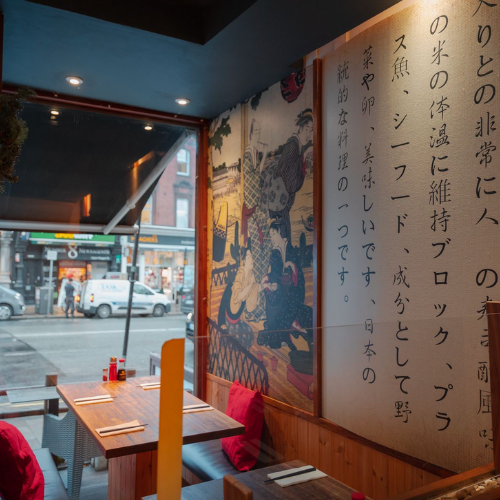 りとの非常に人
の米の体温に維持ブロック、プラ
ス魚、シーフード、成分として野
菜や卵、美味しいです、日本の
統的な料理の一つです。